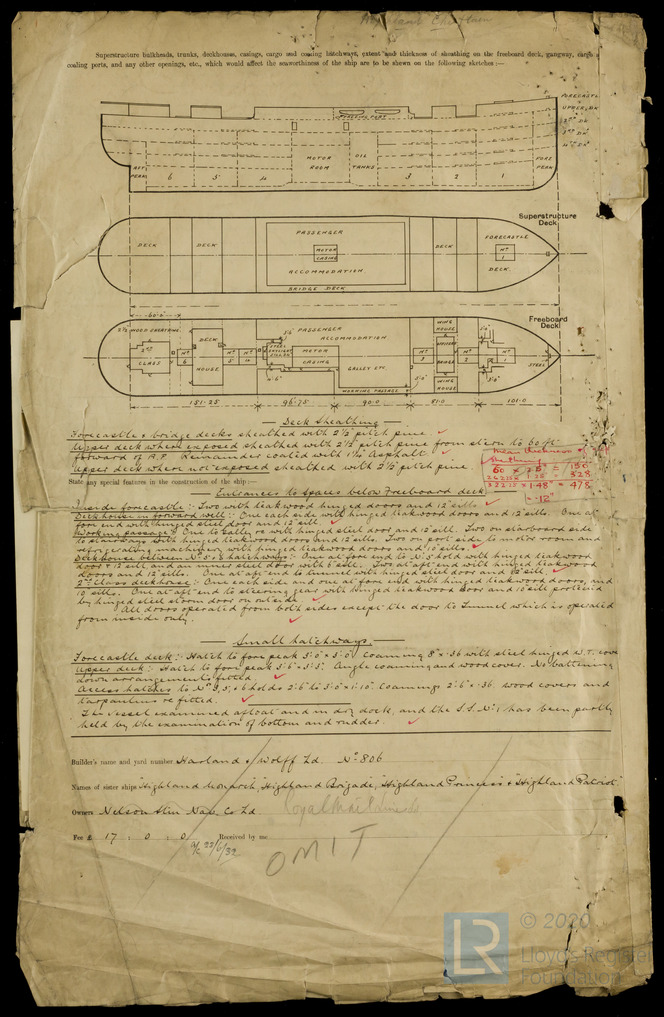 Highland Chieftain
Superstructure bulkheads, trunks, deckhouses, casings, cargo and coaling hatchways, extent and thickness of sheathing on the freeboard deck, gangway, cargo &
coaling ports, and any other openings, etc., which would affect the seaworthiness of the ship are to be shown on the following sketches :—
FORECASTLE
UPPER DK
2ND DK
3RD DK
4TH DK
AFT PEAK
6
5
4
MOTOR ROOM
OIL TANKS
3
2
1
FORE PEAK
Superstructure Deck.
DECK
DECK
PASSENGER
MOTOR CASING
ACCOMMODATION.
BRIDGE DECK
DECK
FORECASTLE
No 1
DECK.
Freeboard Deck.
60'-0"
2½" WOOD SHEATHING.
2ND CLASS
No 6
DECK
HOUSE
No 5
No 4
PASSENGER
ACCOMMODATION
MOTOR
CASING
GALLEY ETC.
WORKING PASSAGE
No 3
WING HOUSE
WING HOUSE
No 2
No 1
STORES
151·25
96·75
90·0
81·0
101·0
Deck Sheathing
Forecastle & bridge decks sheathed with 2½" pitch pine.
Upper deck where exposed sheathed with 2½" pitch pine from stern to 60 ft
forward of A.P. Remainder coated with 1¼" Asphalt.
Upper deck where not exposed sheathed with 2½" pitch pine.
Mean thickness of
sheathing
60 x 2.5 = 150
= 328
1.48" = 478
= .18"
State any special features in the construction of the ship :—
Entrances to Spaces below Freeboard deck
Inside forecastle:- Two with teakwood hinged doors and 12" sills.
Deckhouse in forward well:- One each side with hinged teakwood doors and 12" sills. One at
fore end with hinged steel door and 12" sill.
Working passage:- One to Galley etc with hinged steel door and 12" sill. Two on starboard side
to stairways with hinged teakwood doors and 12" sills. Two on port side to motor room and
refrigerating machinery with hinged teakwood doors and 10" sills.
Deckhouse between Nos 5 & 6 hatchways:- One at for end to No 5 hold with hinged teakwood
door & 12" sill and an inner steel door with 6" sill. Two at aft end with hinged teakwood
doors and 12" sills. One at aft end to tunnel with hinged steel door and 12" sill
2nd Class deckhouse:- One each side and one at fore end with hinged teakwood doors, and
10" sills. One at aft end to steering gear with hinged teakwood door and 10" sill protected
by hinged steel storm door on outside.
All doors operated from both sides except the door to Tunnel which is operated
from inside only.
Small hatchways
Forecastle deck:- Hatch to fore peak 3'·0" x 3'·0" Coaming 8" x ·36 with steel hinged W.T. cover
Upper deck:- Hatch to fore peak 3'·6" x 3'·3". Angle coaming and wood cover. No battening
down arrangements fitted
Access hatches to Nos 3, 5 & 6 holds 2'·6" to 3'·0" x 1'·10". Coamings 2'·6" x ·36. wood covers and
tarpaulins re fitted.
The vessel examined afloat and in dry dock, and the S.S. No 1 has been partly
held by the examination of bottom and rudder.
Builder's name and yard number Harland & Wolff Ld. No 806
Names of sister ships "Highland Monarch", "Highland Brigade", "Highland Princess" & "Highland Patriot"
Owners Nelson Stm Nav. Co Ld. Royal Mail Lines Ld
Fee £ 17 : 0 : 0 Received by me
a/c 22/6/32
OMIT
LR
© 2020
Lloyd's Register
Foundation